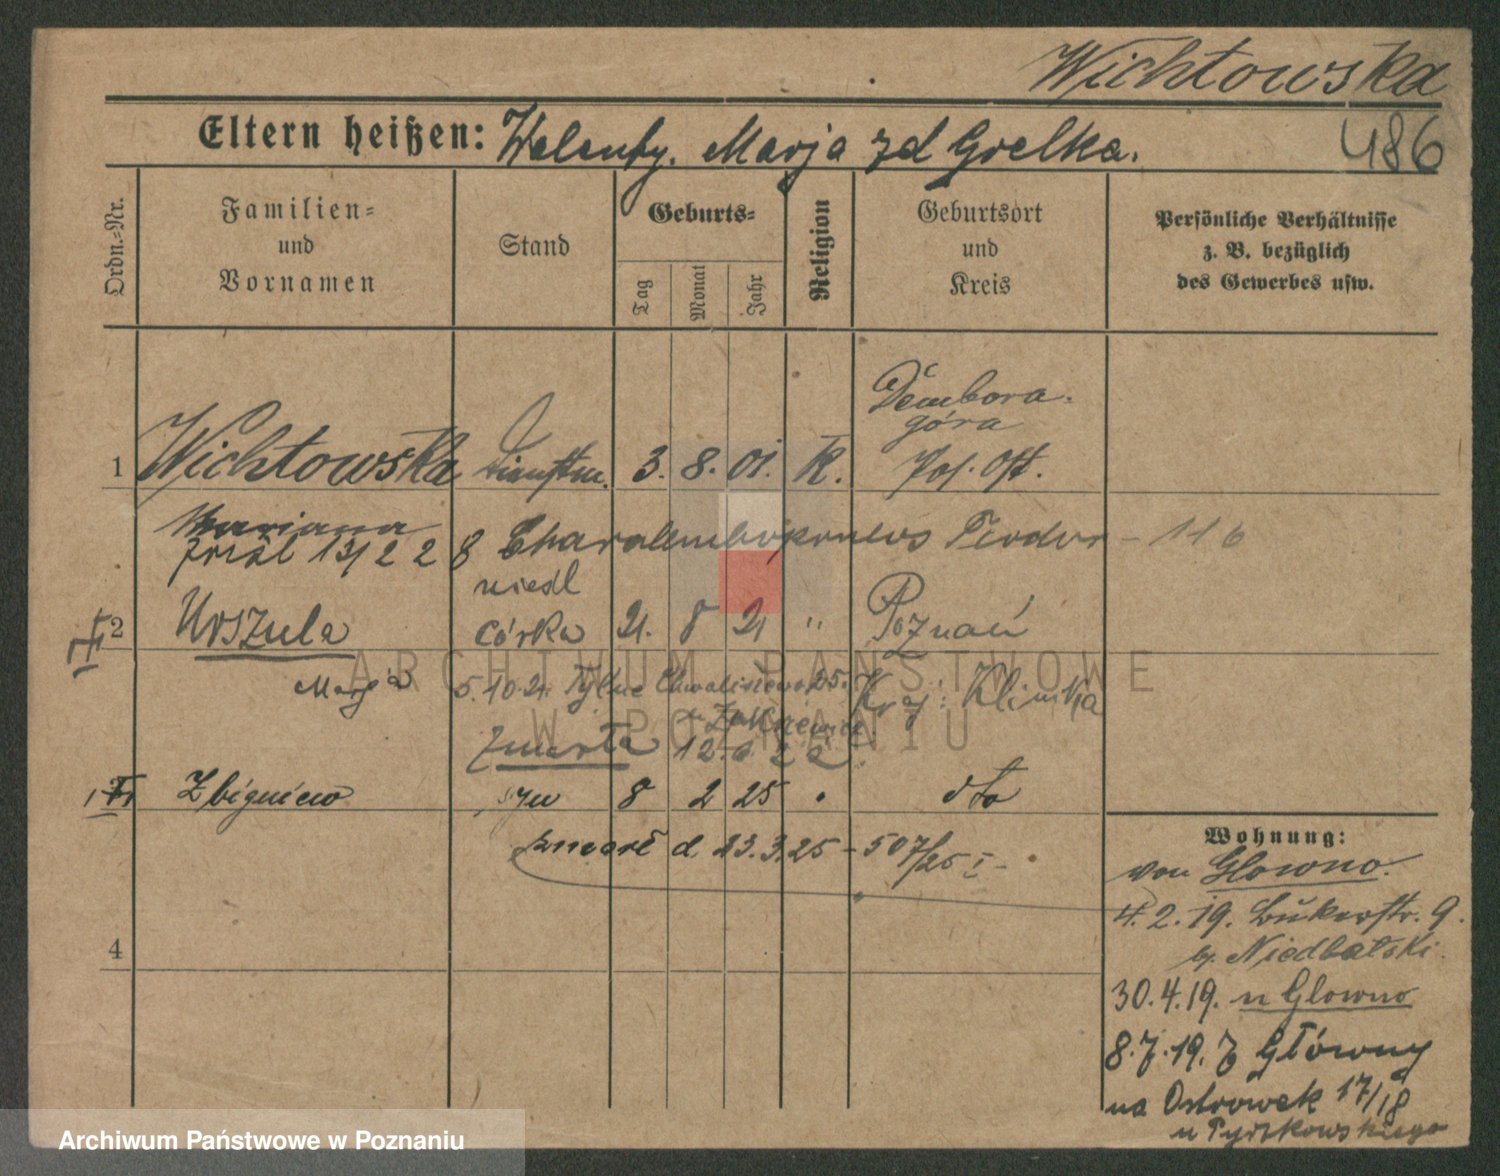 Wichtowska
486
Eltern heißen: Walenty. Marja zd Grelka.
Ordn.-Nr.
Familien-
und
Vornamen
Stand
Geburts-
Tag
Monat
Jahr
Religion
Geburtsort
und
Kreis
Persönliche Verhältnisse
z. B. bezüglich
des Gewerbes usw.
1 Wichtowska 3. 8. 01. K. Dembora-
góra
Pos. Ost.
Marianna
8 Teodor - 116
niedl
2 Urszula córka 21. 8 21 " Poznań
Marja 5.10.21 Tylne Chwaliszewo 25.
Zmarła
Zbigniew syn 8 2 25 dto
zmarł d. 23.3.25 - 507/25 I -
4
Wohnung:
von Glowno.
4.2.19. Bukerstr. 9.
b. Niedbalski.
30.4.19. n Glowno
8.7.19. z Główny
na Ostrowek 17/18
u Pyrzkowskiego
ARCHIWUM PAŃSTWOWE
W POZNANIU
Archiwum Państwowe w Poznaniu